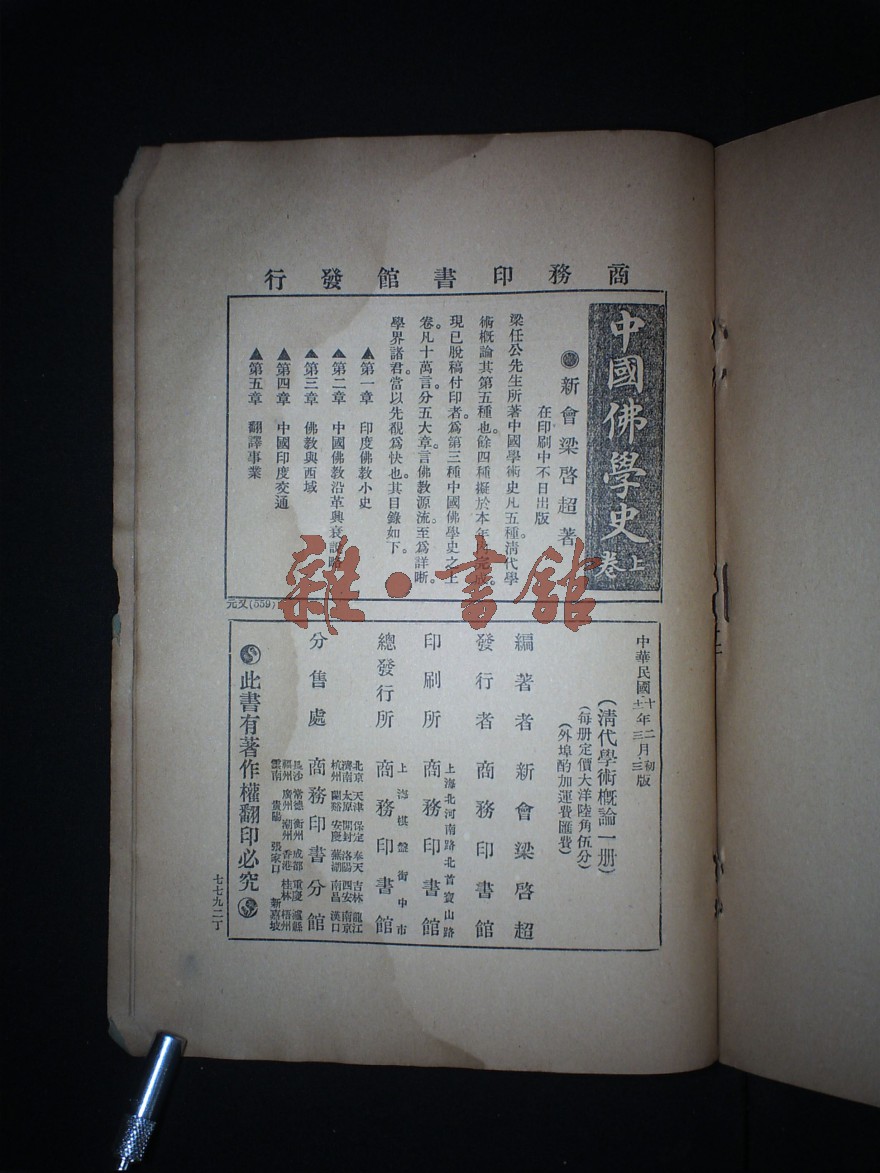 商務印書館發行
中國佛學史
上卷
新會梁啓超著
在印刷中不日出版
梁任公先生所著中國學術史凡五種。清代學
術概論其第五種也。餘四種擬於本年內完成。
現已脫稿付印者。爲第三種中國佛學史之上
卷。凡十萬言。分五大章。言佛教源流。至爲詳晰。
學界諸君。當以先覩爲快也。其目錄如下。
▲第一章 印度佛教小史
▲第二章 中國佛教沿革興衰說略
▲第三章 佛教與西域
▲第四章 中國印度交通
▲第五章 翻譯事業
元又(859)
中華民國十年二月初版
(清代學術概論一册)
(每册定價大洋陸角伍分)
(外埠酌加運費匯費)
編著者 新會梁啓超
發行者 商務印書館
印刷所 商務印書館
上海北河南路北首寶山路
總發行所 商務印書館
上海棋盤街中市
分售處 商務印書分館
北京 天津 保定 奉天 吉林 龍江
濟南 太原 開封 洛陽 西安 南京
杭州 蘭谿 安慶 蕪湖 南昌 漢口
長沙 常德 衡州 成都 重慶 瀘縣
福州 廣州 潮州 香港 桂林 梧州
雲南 貴陽 張家口 新嘉坡
此書有著作權翻印必究
七七九二丁
雜·書館